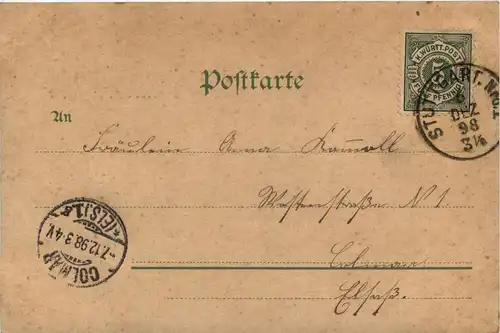 K. WÜRTT. POST
5
FÜNF PFENNIG
Postkarte
STUTTGART. No. 1
6
DEZ
98
3½
An
Fräulein Anna
Weststraße N 1.
COLMAR (ELS.) 1.
7.12.98. 3-4 V.
Colmar
Elsaß.